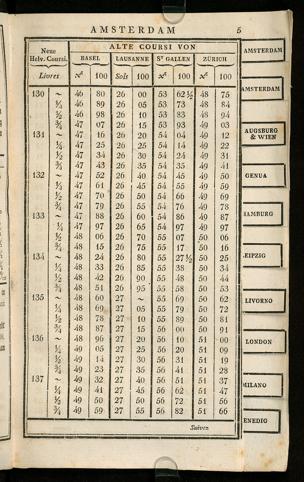 AMSTERDAM 5
Neue Helv. Coursi. ALTE COURSI VON
BASEL LAUSANNE St GALLEN ZÜRICH
Livres xr 100 Sols 100 xr 100 xr 100
130 ~ 46 80 26 00 53 62½ 48 75
¼ 46 89 26 05 53 73 48 84
½ 46 98 26 10 53 83 48 94
¾ 47 07 26 15 53 93 49 03
131 ~ 47 16 26 20 54 04 49 12
¼ 47 25 26 25 54 14 49 22
½ 47 34 26 30 54 24 49 31
¾ 47 43 26 35 54 35 49 41
132 ~ 47 52 26 40 54 45 49 50
¼ 47 61 26 45 54 55 49 59
½ 47 70 26 50 54 66 49 69
¾ 47 79 26 55 54 76 49 78
133 ~ 47 88 26 60 54 86 49 87
¼ 47 97 26 65 54 97 49 97
½ 48 06 26 70 55 07 50 06
¾ 48 15 26 75 55 17 50 16
134 ~ 48 24 26 80 55 27½ 50 25
¼ 48 33 26 85 55 38 50 34
½ 48 42 26 90 55 48 50 44
¾ 48 51 26 95 55 58 50 53
135 ~ 48 60 27 ~ 55 69 50 62
¼ 48 69 27 05 55 79 50 72
½ 48 78 27 10 55 89 50 81
¾ 48 87 27 15 56 00 50 91
136 ~ 48 96 27 20 56 10 51 00
¼ 49 05 27 25 56 20 51 09
½ 49 14 27 30 56 31 51 19
¾ 49 23 27 35 56 41 51 28
137 ~ 49 32 27 40 56 51 51 37
¼ 49 41 27 45 56 62 51 47
½ 49 50 27 50 56 72 51 56
¾ 49 59 27 55 56 82 51 66
Suiven
AMSTERDAM
AMSTERDAM
AUGSBURG
& WIEN
GENUA
HAMBURG
LEIPZIG
LIVORNO
LONDON
MILANO
VENEDIG